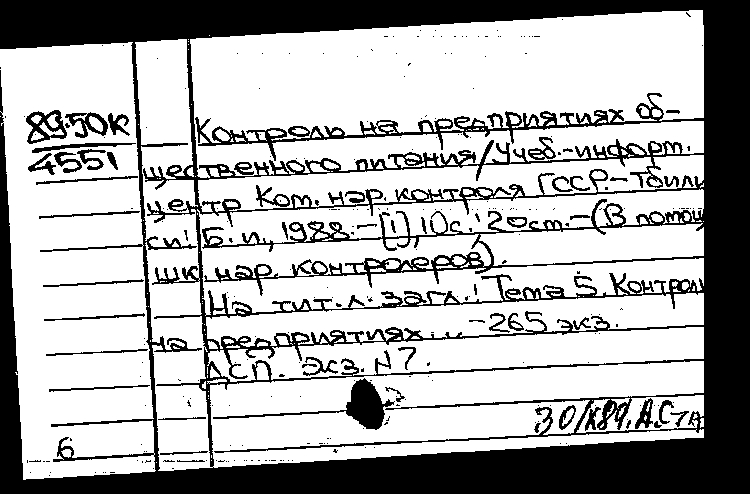 89-50к
4551
Контроль на предприятиях об-
щественного питания/Учеб.-информ.
центр Ком. нар. контроля ГССР.-Тбили
си: Б. и., 1988.-[1],10с.; 20см.-(В помощ
шк. нар. контролеров).
На тит. л. загл.: Тема 5. Контрол
на предприятиях...-265 экз.
ДСП. Экз. N7.
6